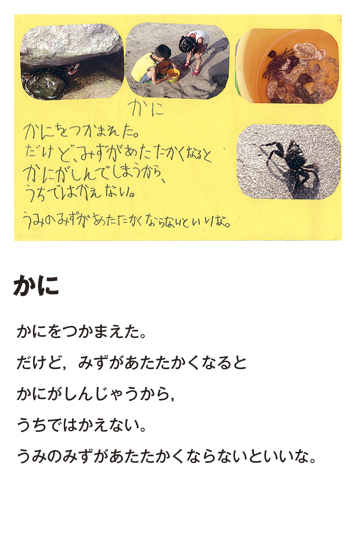 かに
かにをつかまえた。
だけど、みずがあたたかくなると
かにがしんでしまうから、
うちではかえない。
うみのみずがあたたかくならないといいな。
かに
かにをつかまえた。
だけど，みずがあたたかくなると
かにがしんじゃうから，
うちではかえない。
うみのみずがあたたかくならないといいな。